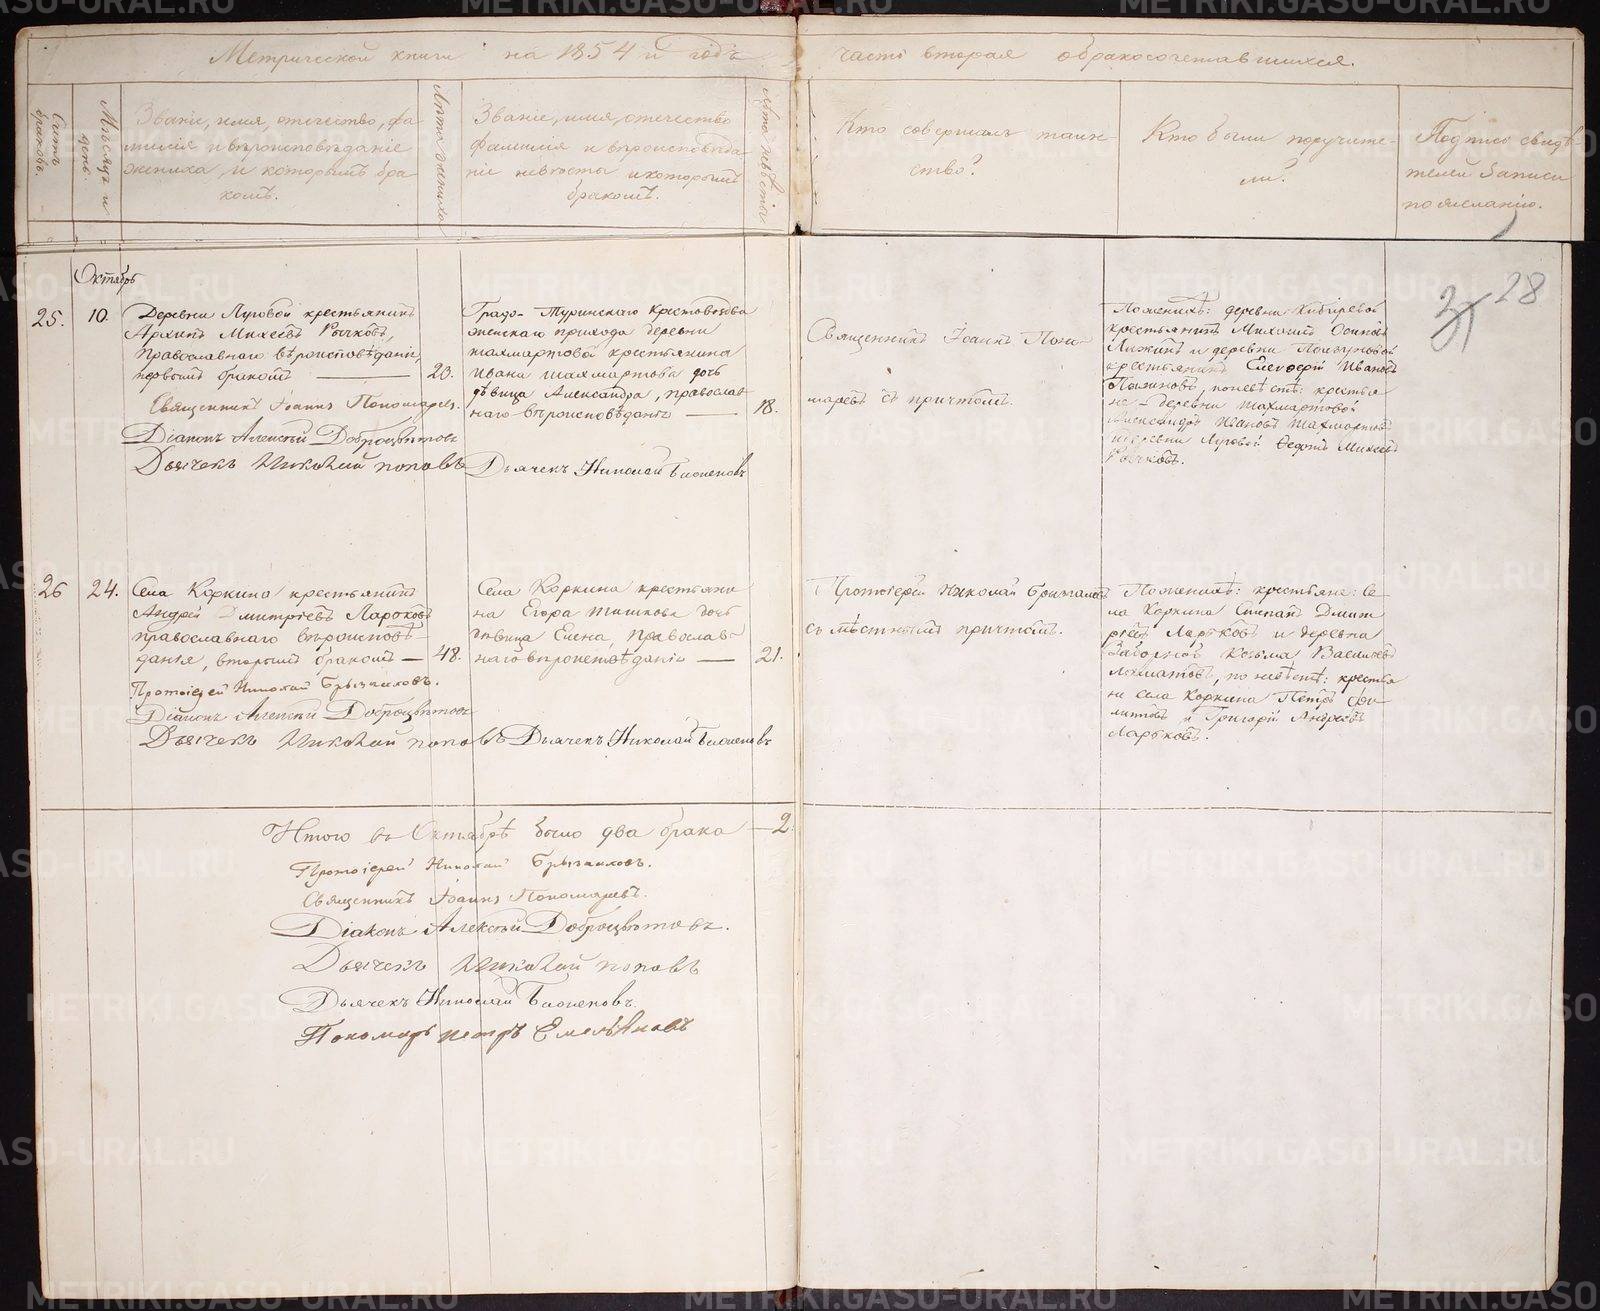 Метрической книги на 1854й годъ часть вторая о бракосочетавшихся.
Счетъ браковъ.
Мѣсяцъ и день.
Званіе, имя, отечество, фа-
милія и вѣроисповѣданіе
жениха, и которымъ бра-
комъ.
Лѣта жениха
Званіе, имя, отечество
фамилія и вѣроисповѣда-
ніе невѣсты и которымъ
бракомъ.
Лѣта невѣсты
Кто совершалъ таин-
ство?
Кто были поручите-
ли?
Подпись свидѣ-
телей записи
по желанію.
28
Октябрь
25. 10.
Деревни Луговой крестьянинъ
Архипъ Михеевъ Рычковъ,
православнаго вѣроисповѣданія,
первымъ бракомъ — 20.
Священникъ Іоаннъ Пономаревъ.
Діаконъ Алексѣй Доброцвѣтовъ
Дьячекъ Николай Поповъ
Градо-Туринскаго Крестовоздви
женскаго прихода деревни
Шахмартовой крестьянина
Ивана Шахмартова дочь
дѣвица Александра, православ
наго вѣроисповѣданія — 18.
Дьячекъ Николай
Священникъ Іоаннъ Поно-
маревъ съ причтомъ.
По женихѣ: деревни
крестьянинъ Михаилъ Осиповъ
и деревни
крестьянинъ Елевферій Ивановъ
по невѣстѣ: крестья
не – деревни Шахмартовой
Александръ Ивановъ Шахмартовъ
и деревни Луговой Федотъ Михеевъ
Рычковъ.
26 24.
Села Коркина крестьянинъ
Андрей Дмитріевъ Ларьковъ
православнаго вѣроисповѣ-
данія, вторымъ бракомъ — 48.
Протоіерей Николай Брызгаловъ.
Діаконъ Алексѣй Доброцвѣтовъ
Дьячекъ Николай Поповъ
Села Коркина крестьяни
на Егора Тишкова дочь
дѣвица Елена, православ-
наго вѣроисповѣданія — 21.
Дьячекъ Николай
Протоіерей Николай Брызгаловъ
съ мѣстнымъ причтомъ.
По женихѣ: крестьяне: се-
ла Коркина Степанъ Дмит
ріевъ Ларьковъ и деревни
Козьма Васильевъ
по невѣстѣ: крестья
не села Коркина Петръ Фи
липовъ и Григорій Андреевъ
Ларьковъ.
Итого въ Октябрѣ было два брака — 2.
Протоіерей Николай Брызгаловъ.
Священникъ Іоаннъ Пономаревъ.
Діаконъ Алексѣй Доброцвѣтовъ.
Дьячекъ Николай Поповъ
Дьячекъ Николай
Пономарь Петръ Емельяновъ
METRIKI.GASO-URAL.RU